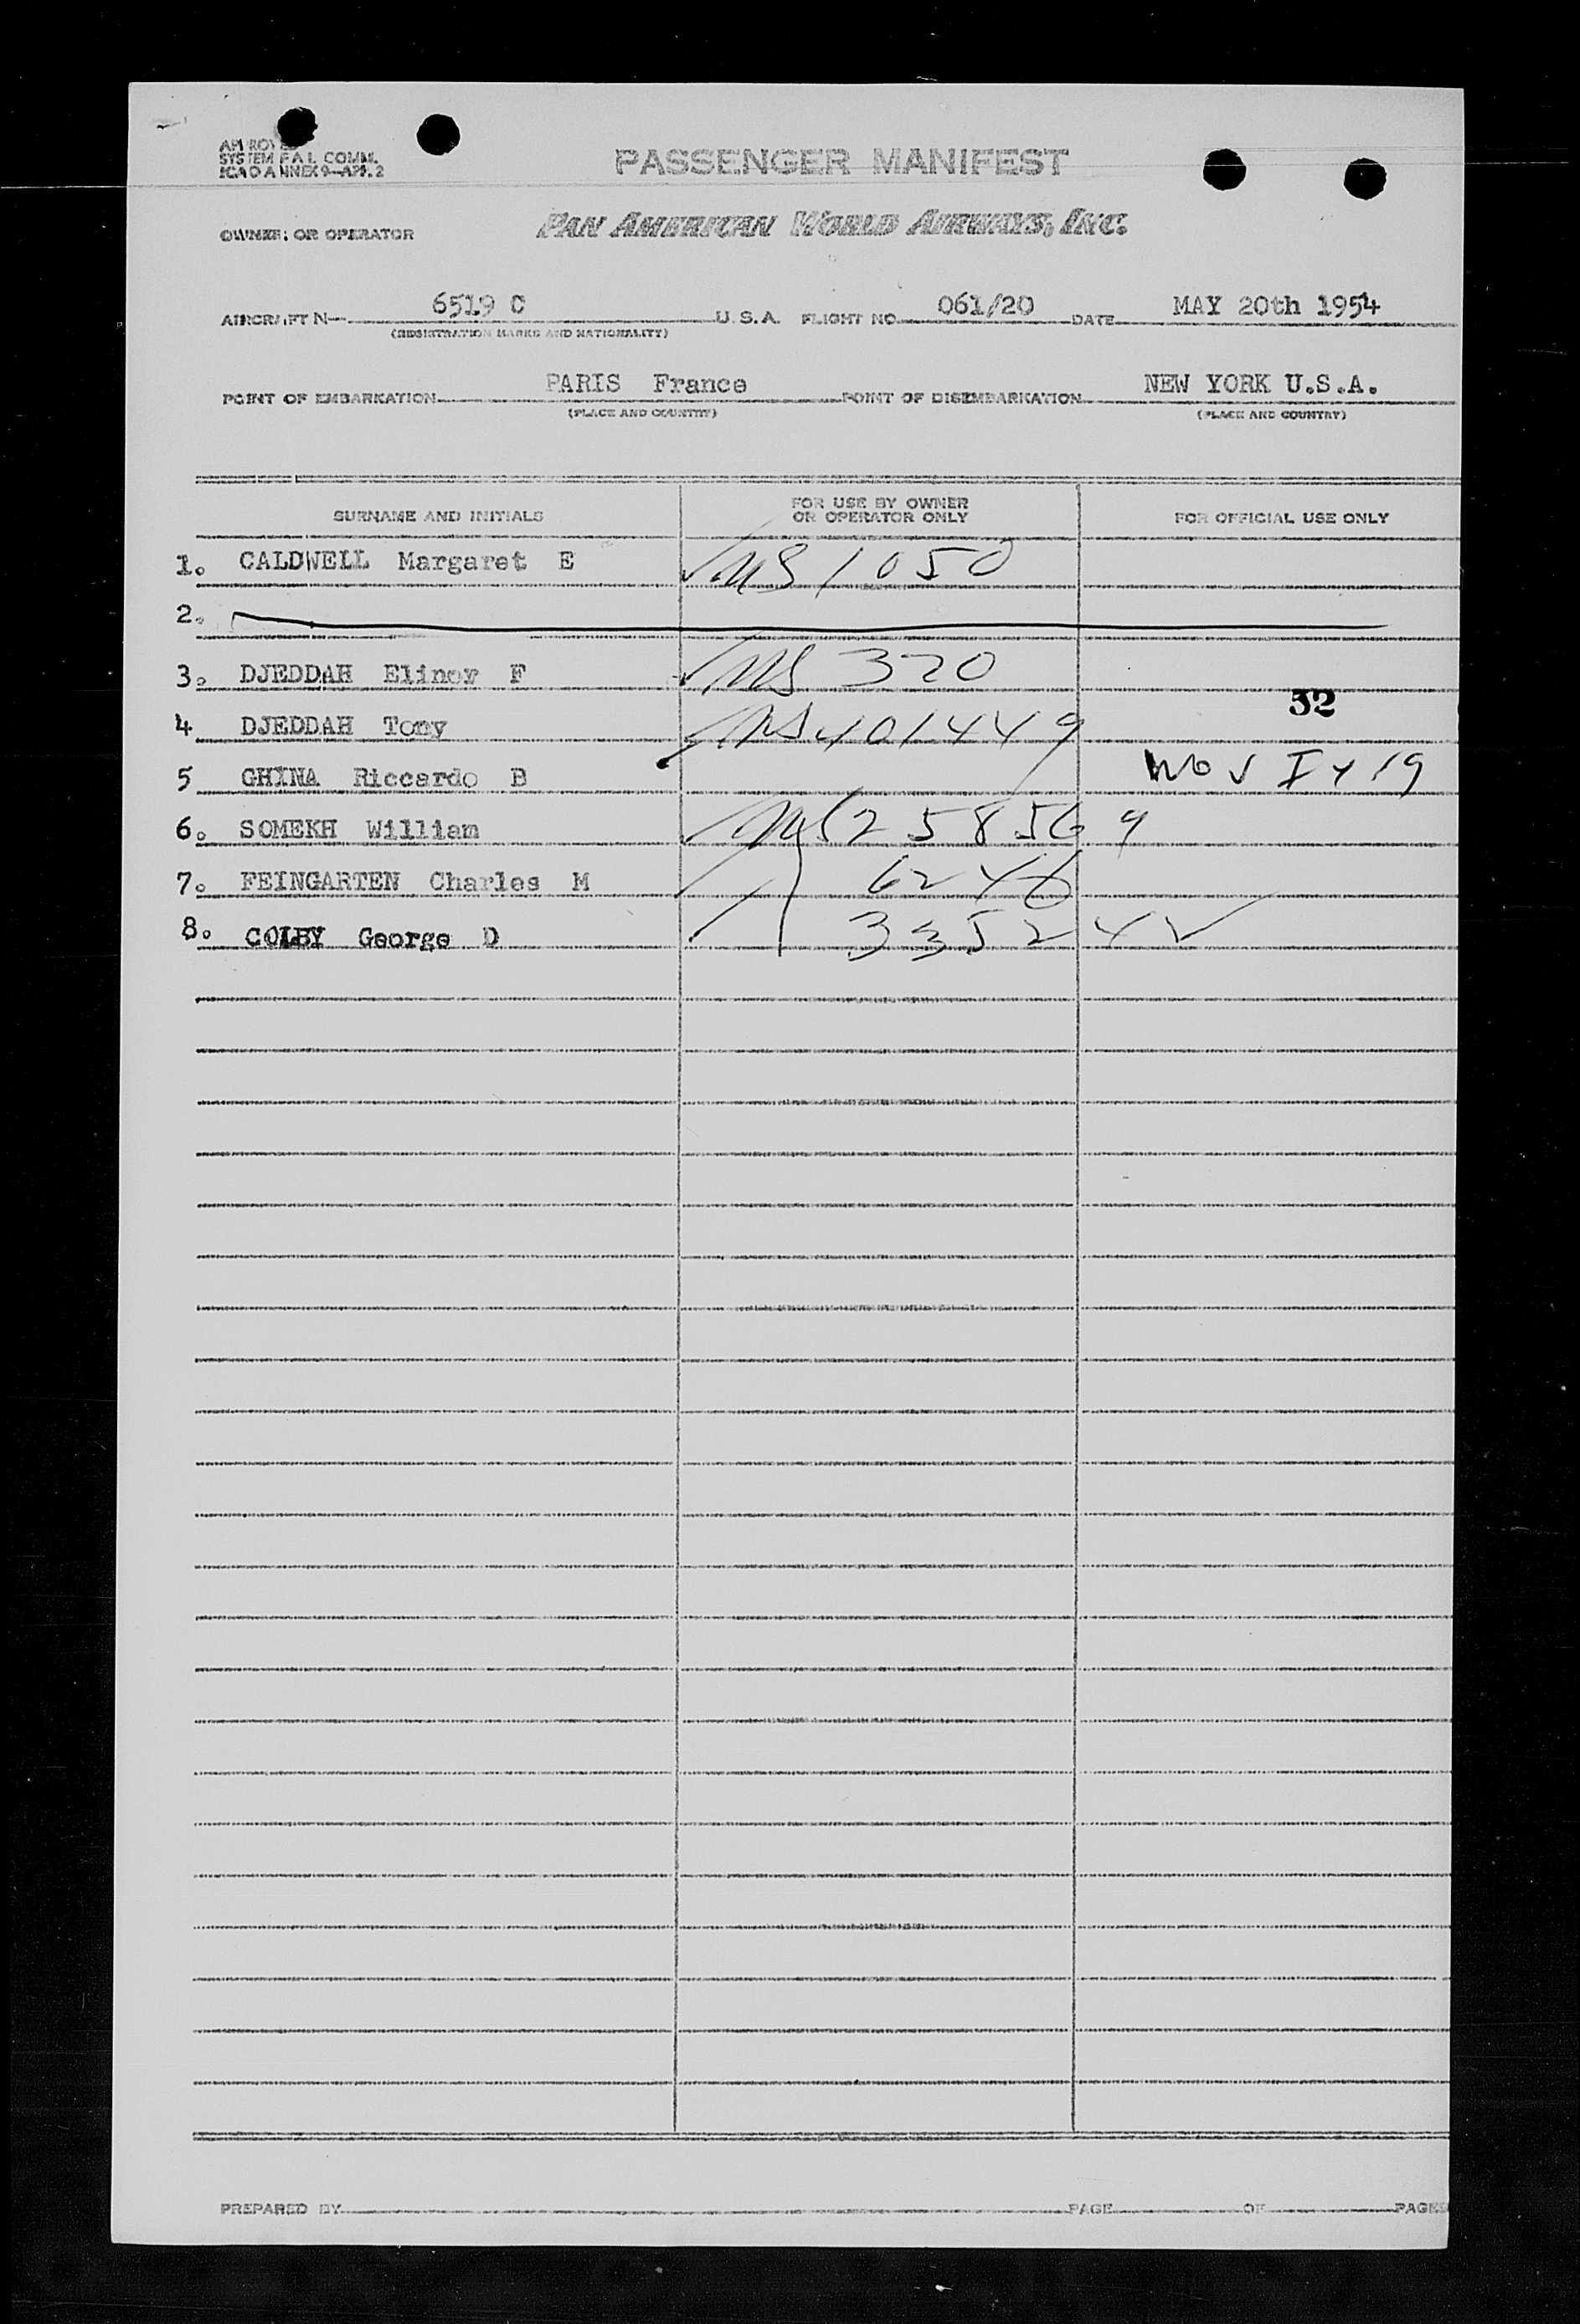 APPROVED
SYSTEM F A L COMM.
ICAO ANNEX 9—APP. 2
PASSENGER MANIFEST
OWNER OR OPERATOR PAN AMERICAN WORLD AIRWAYS, INC.
AIRCRAFT N— 6519 C U.S.A. FLIGHT NO. 061/20 DATE MAY 20th 1954
(REGISTRATION MARKS AND NATIONALITY)
POINT OF EMBARKATION PARIS France POINT OF DISEMBARKATION NEW YORK U.S.A.
(PLACE AND COUNTRY) (PLACE AND COUNTRY)
SURNAME AND INITIALS FOR USE BY OWNER OR OPERATOR ONLY FOR OFFICIAL USE ONLY
1. CALDWELL Margaret E US 1050
2.
3. DJEDDAH Elinor F US 320
4 DJEDDAH Tony US 401449
32
5 GHINA Riccardo B
6. SOMEKH William US 258569
7. FEINGARTEN Charles M 6246
8. COLBY George D 335242
PREPARED BY PAGE OF PAGES